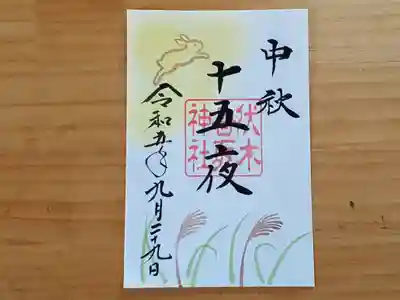 中秋
十五夜
伏木
香取
神社
令和五年九月二十九日